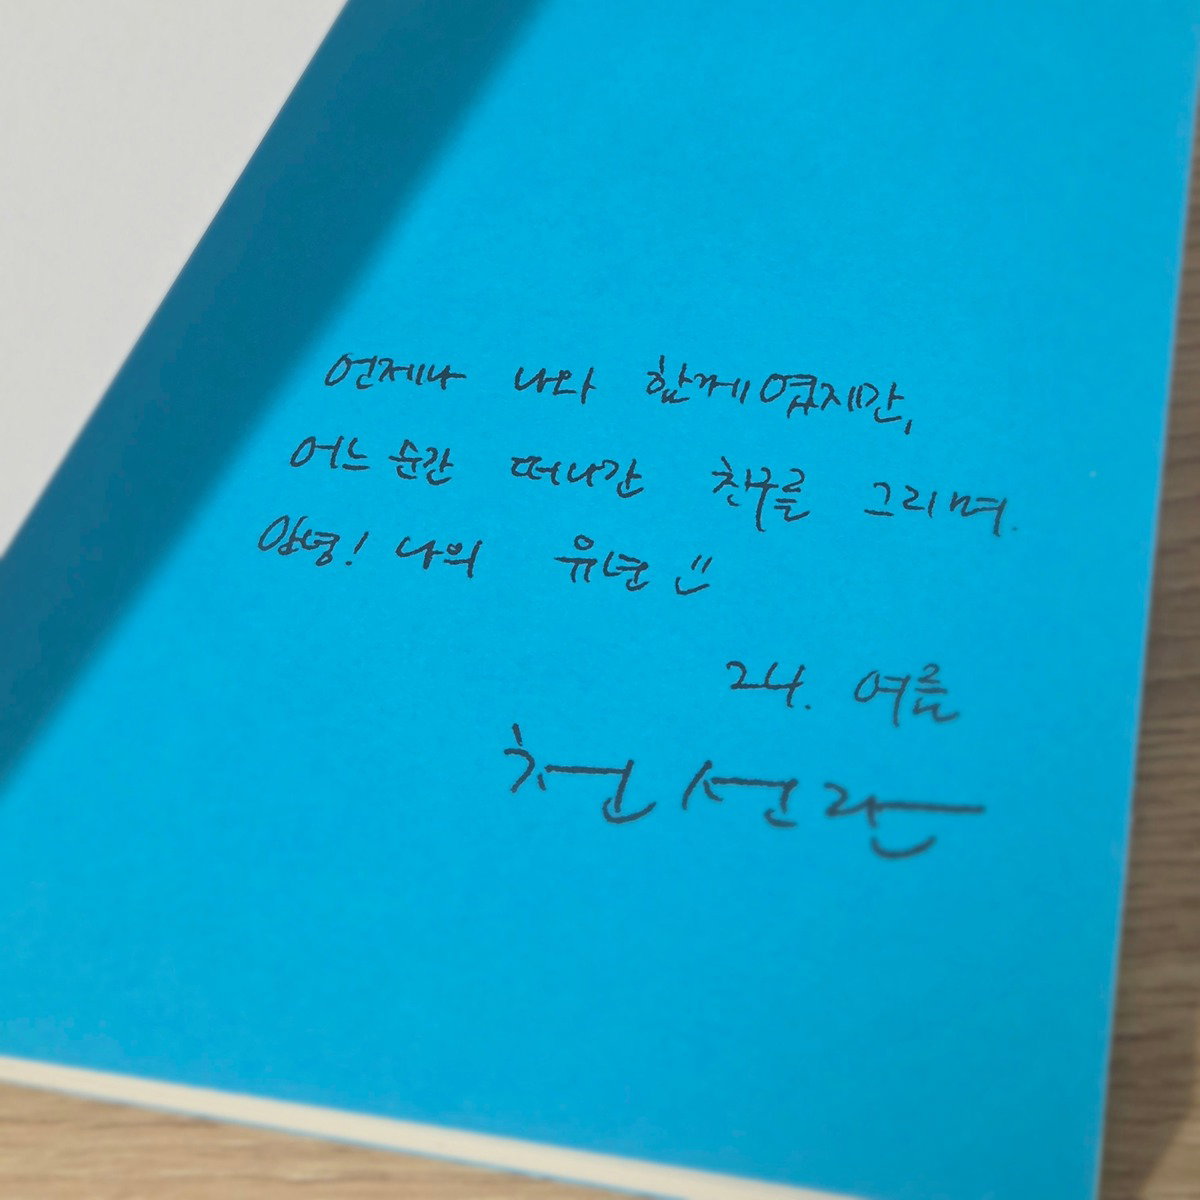 언제나 나와 함께였지만,
어느 순간 떠나간 친구를 그리며.
안녕! 나의 유년
24. 여름
천선란